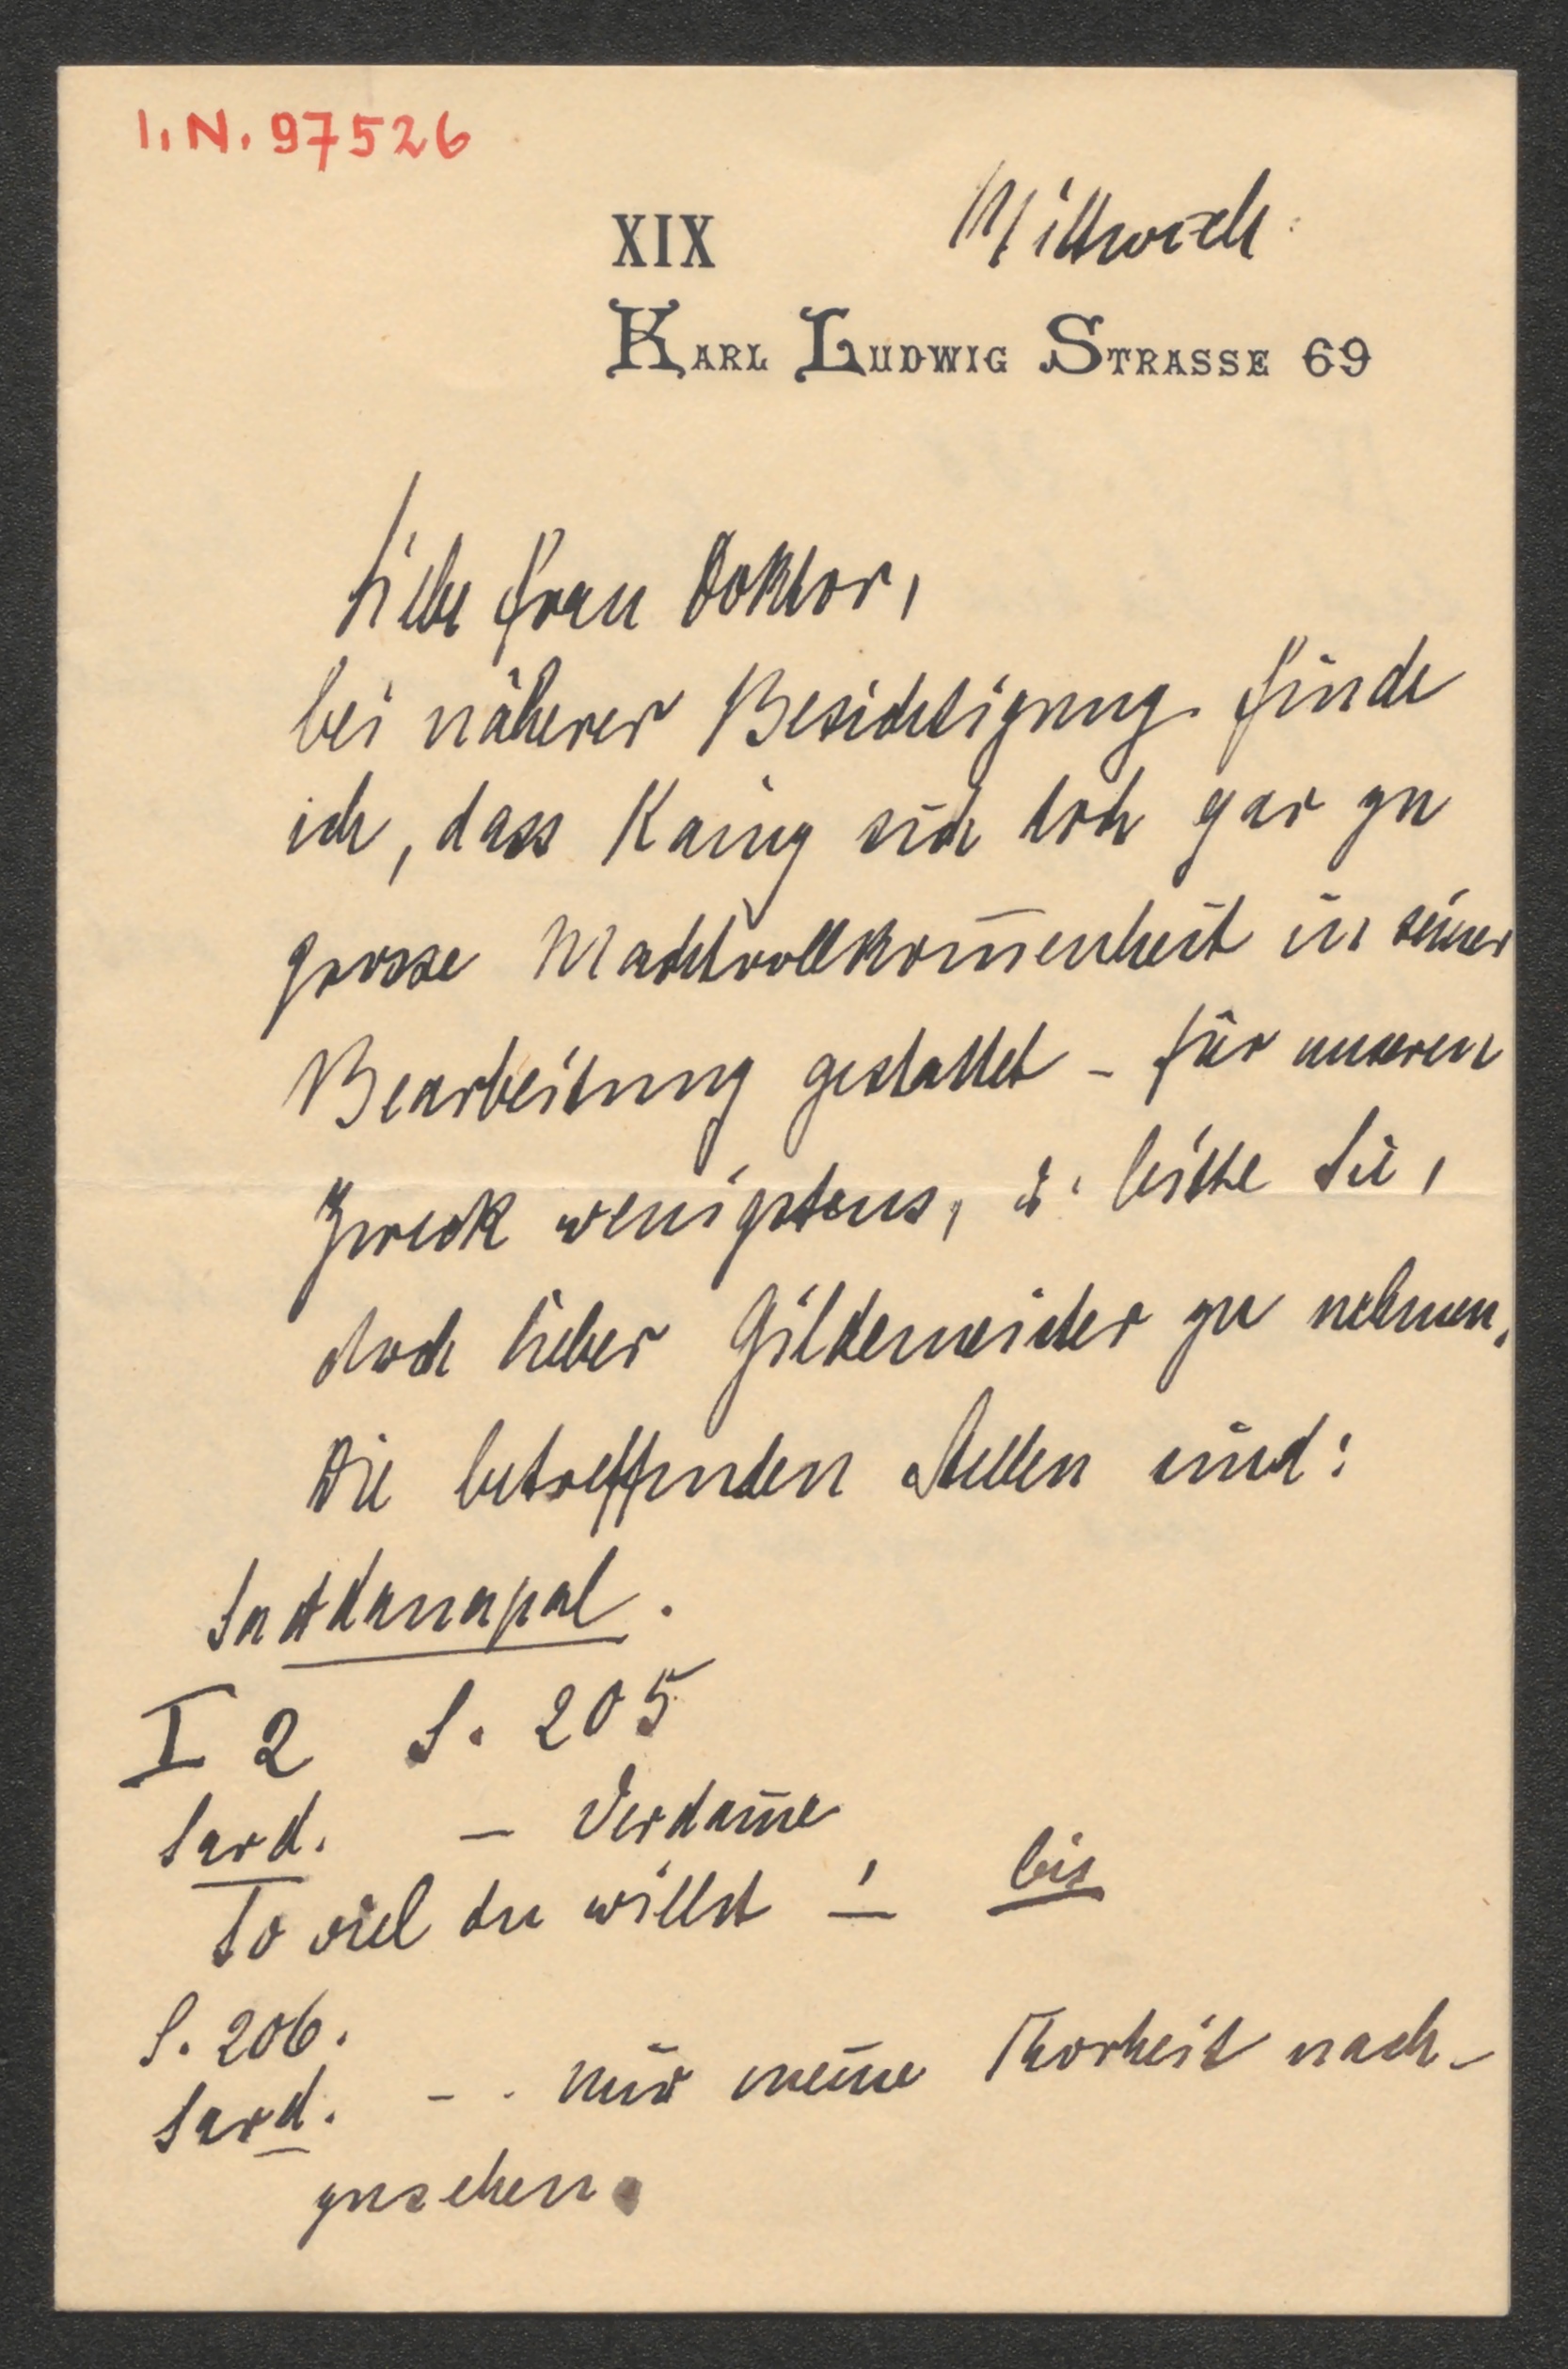 I.N. 97526
XIX
Mittwoch
KARL LUDWIG STRASSE 69
Liebe Frau Doktor,
bei näherer Besichtigung finde
ich, dass Kainz sich doch gar zu
grosse Machtvollkom̄enheit in seiner
Bearbeitung gestattet – für unseren
Zweck wenigstens, u. bitte Sie,
doch lieber Gildemeister zu nehmen.
Die betreffenden Stellen sind:
Sardanapal.
I 2 S. 205
Sard. – Verdam̄e
So viel du willst! – bis
S. 206.
Sard. – . mir meine Thorheit nach-
zusehen.